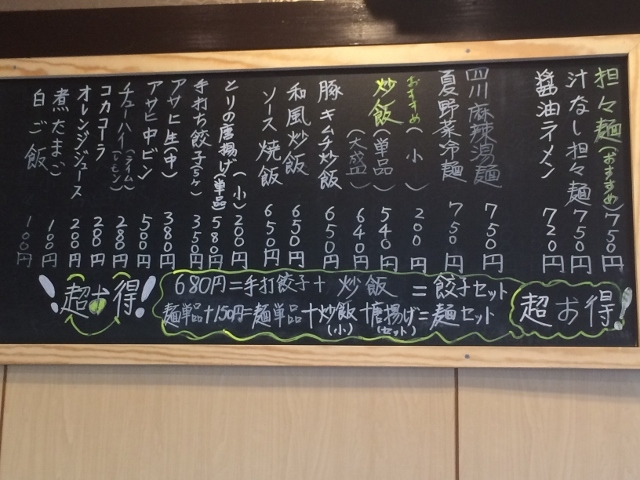 担々麺(おすすめ) 750円
汁なし担々麺 750円
醤油ラーメン 720円
四川麻辣湯麺 750円
夏野菜冷麺 750円
おすすめ 炒飯 (小) 200円
(単品) 540円
(大盛) 640円
豚キムチ炒飯 650円
和風炒飯 650円
ソース焼飯 650円
とりの唐揚げ (小) 200円
(単品) 580円
手打ち餃子(5ヶ) 350円
アサヒ生(中) 380円
アサヒ中ビン 500円
チューハイ(ライム)(レモン) 280円
コカコーラ 200円
オレンジジュース 200円
煮たまご 100円
白ご飯 100円
!超お得!
680円=手打餃子+炒飯=餃子セット
麺単品+150円=麺単品+炒飯(小)+唐揚げ(セット)=麺セット
超お得!